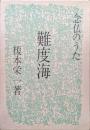 念仏のうた
難度海
榎本栄一著